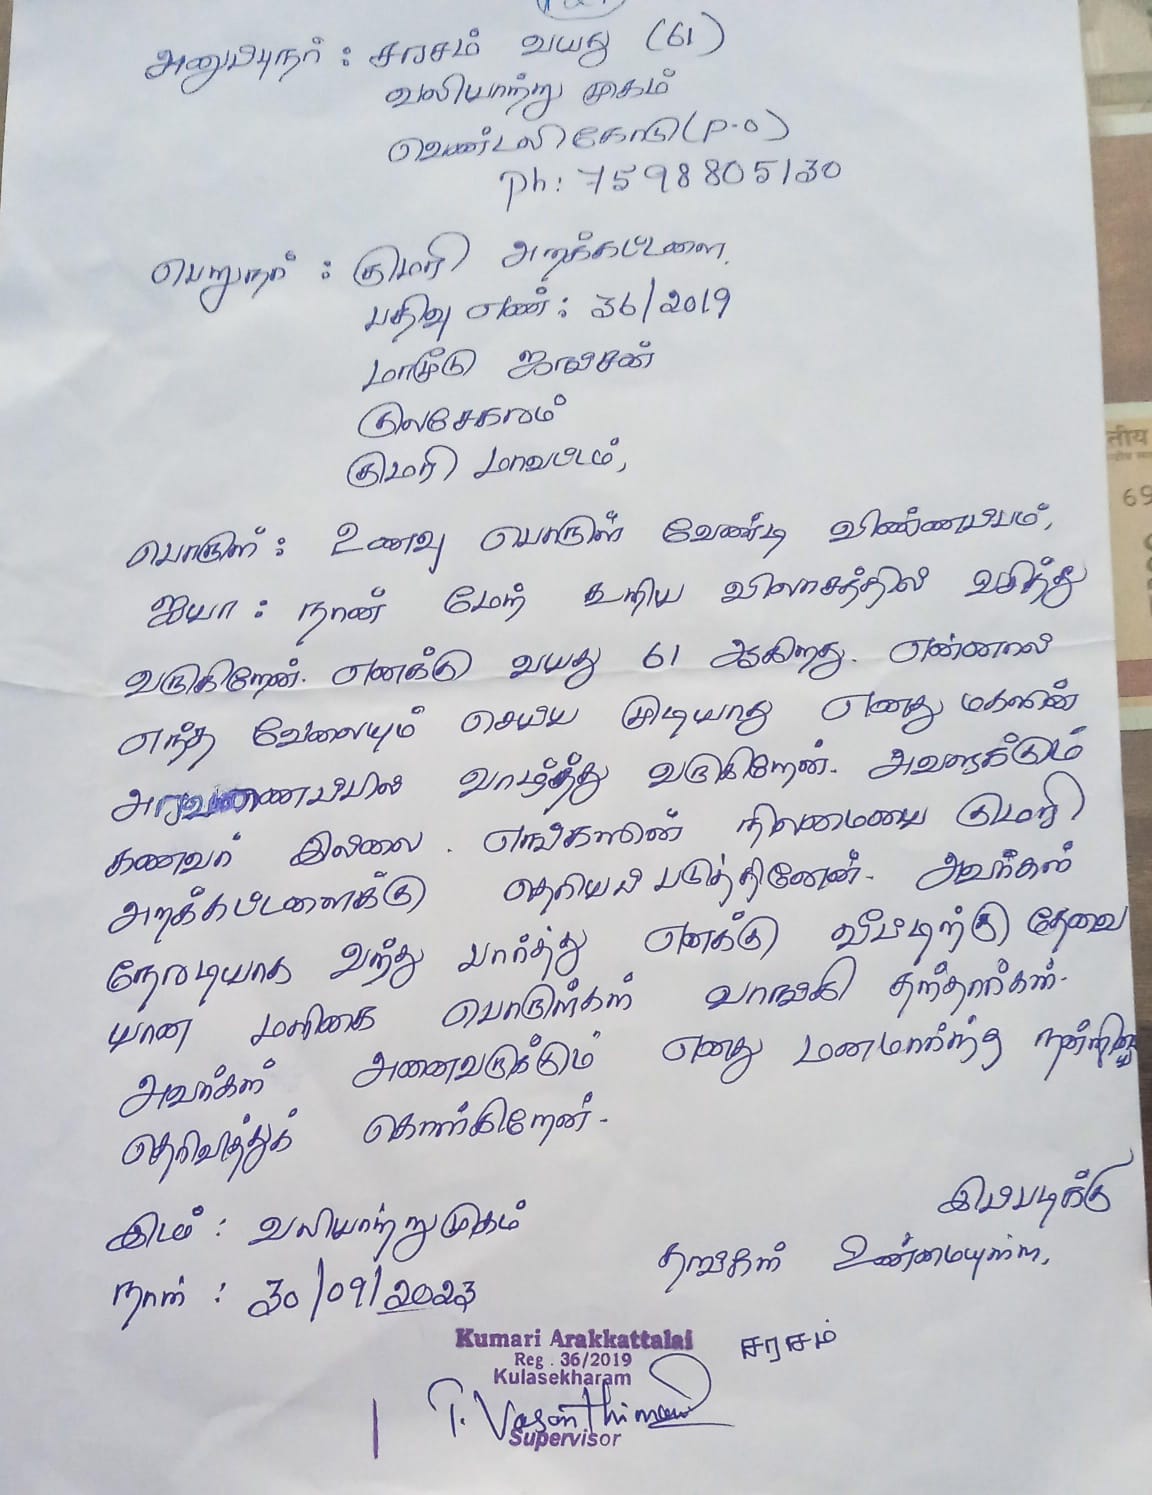 அனுப்புநர் : சரசம் வயது (61)
வலியாற்று முகம்
வெண்டலிகோடு (P.O)
Ph: 7598805130
பெறுநர் : குமரி அறக்கட்டளை,
பதிவு எண் : 36/2019
மாமூடு ஜங்சன்
குலசேகரம்
குமரி மாவட்டம்,
பொருள் : உணவு பொருள் வேண்டி விண்ணப்பம்,
ஐயா : நான் மேற் கூறிய விலாசத்தில் வசித்து
வருகிறேன். எனக்கு வயது 61 ஆகிறது. என்னால்
எந்த வேலையும் செய்ய முடியாது எனது மகளின்
அரவணைப்பில் வாழ்ந்து வருகிறேன். அவளுக்கும்
கணவர் இல்லை. எங்களின் நிலைமையை குமரி
அறக்கட்டளைக்கு தெரியப்படுத்தினேன். அவர்கள்
நேரடியாக வந்து பார்த்து எனக்கு வீட்டிற்கு தேவை
யான மளிகை பொருள்கள் வாங்கி தந்தார்கள்.
அவர்கள் அனைவருக்கும் எனது மனமார்ந்த நன்றியை
தெரிவித்துக் கொள்கிறேன்.
இப்படிக்கு
இடம் : வலியாற்றுமுகம்
தங்கள் உண்மையுள்ள,
நாள் : 30/09/2023
சரசம்
Kumari Arakkattalai
Reg . 36/2019
Kulasekharam
T. Vasanthi
Supervisor
तीय
69